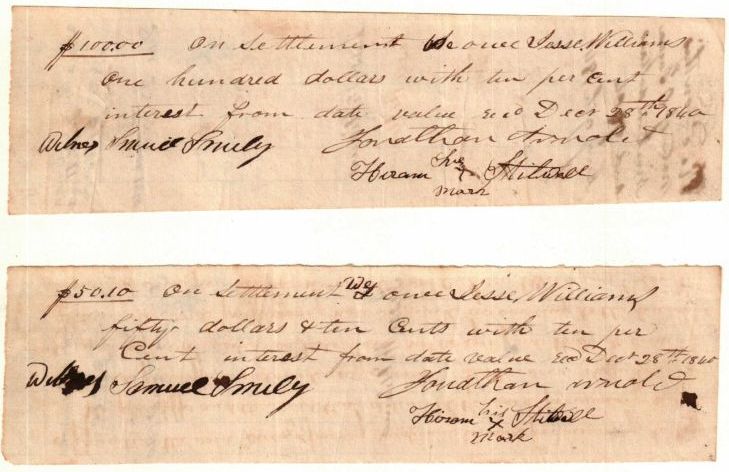 $100.00 On Settlement We owee Jesse Williams
one hundred dollars with ten per cent
interest from date value recd Decr 28th 1840
Witnes Smuel Smiely Jonathan Arnold
Hiram his x mark Stilwell
$50.10 On Settlement We owee Jesse Williams
fifty dollars & ten Cents with ten per
Cent interest from date value recd Decr 28th 1840
Witness Samuel Smily Jonathan Arnold
Hiram his x mark Stilwell